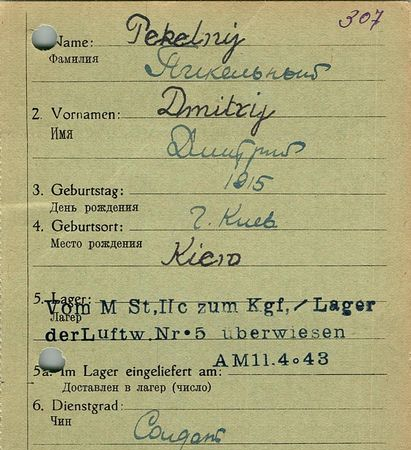 307
Name: Pekelnij
Фамилия Пикельный
2. Vornamen: Dmitrij
Имя Дмитрий
3. Geburtstag: 1915
День рождения
4. Geburtsort: г. Киев
Место рождения
Kiew
5. Lager:
Лагер
Vom M St,IIc zum Kgf,/Lager
der Luftw.Nr•5 überwiesen
AM11.4.43
5a. Im Lager eingeliefert am:
Доставлен в лагер (число)
6. Dienstgrad:
Чин Солдат